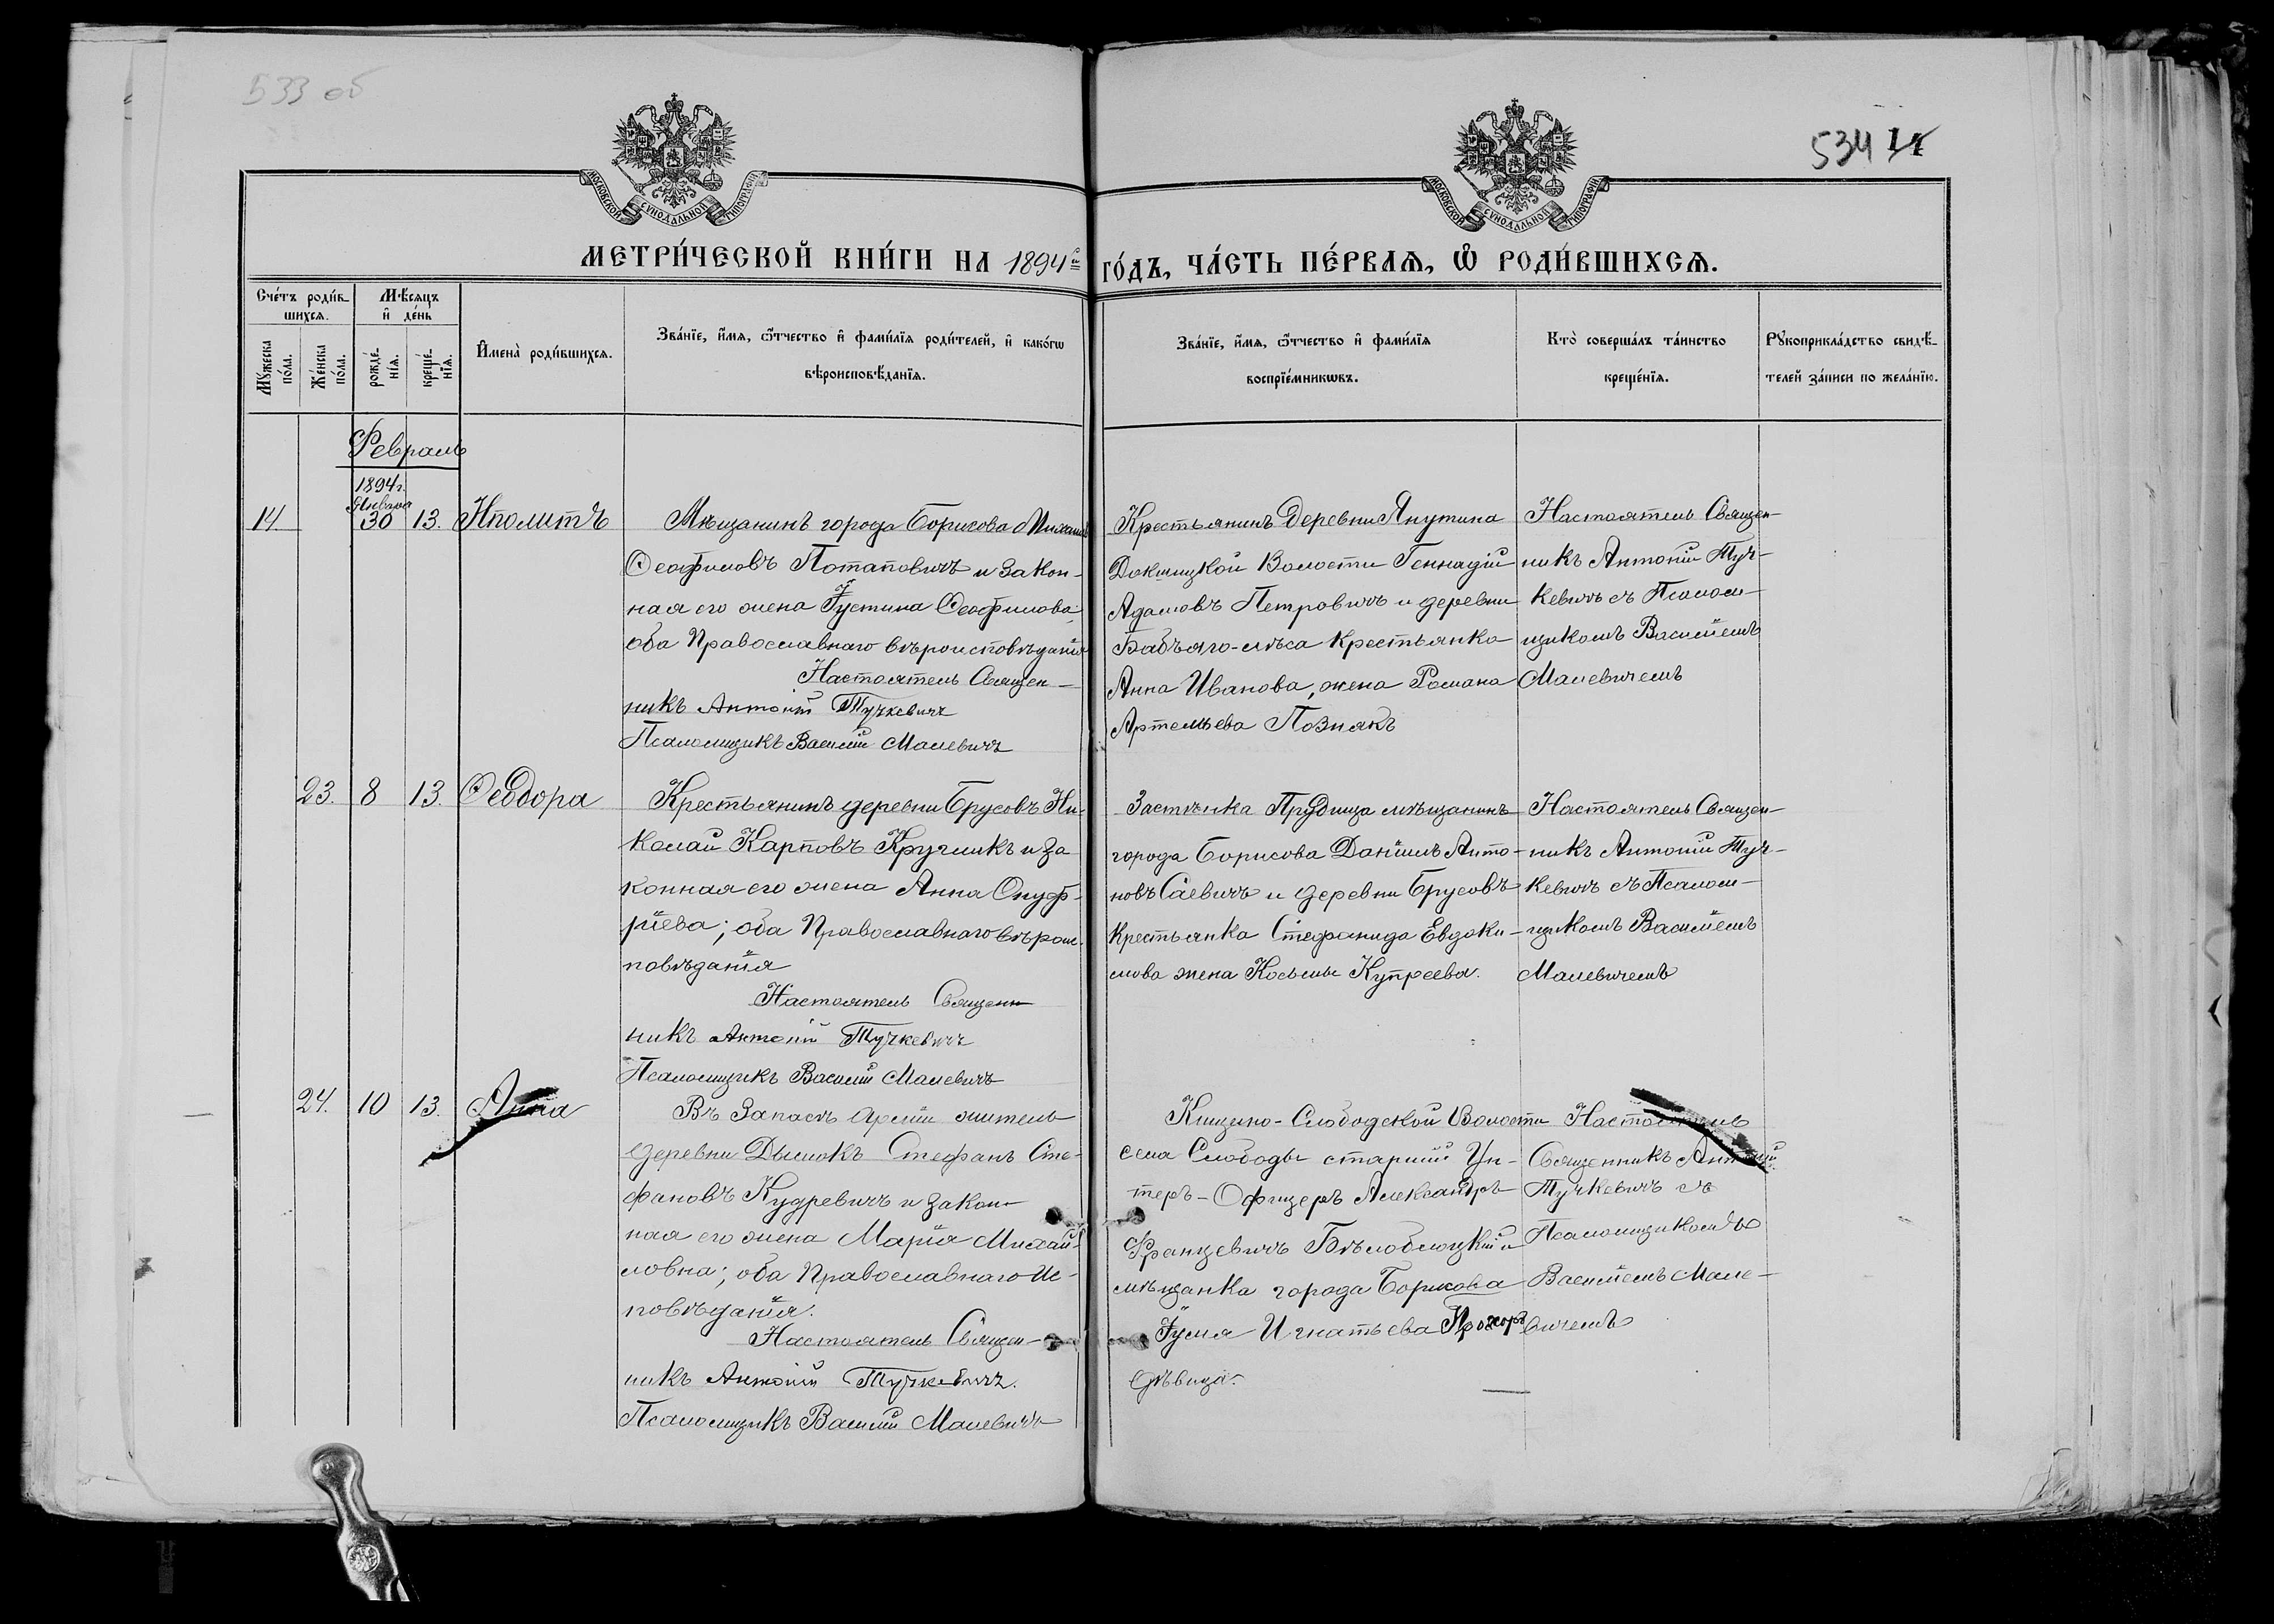 533 об
534
МОСКОВСКОЙ СУНОДАЛЬНОЙ ТИПОГРАФІИ
МОСКОВСКОЙ СУНОДАЛЬНОЙ ТИПОГРАФІИ
МЕТРИ́ЧЕСКОЙ КНИ́ГИ НА 1894й
ГО́ДЪ, ЧА́СТЬ ПЕ́РВАѦ, Ѽ РОДИ́ВШИХСѦ.
Сче́тъ роди́в-
шихсѧ.
Мѣсѧцъ
и҆ де́нь
Мꙋжеска по́ла.
Же́нска по́ла.
рожде́-
нїѧ.
креще́-
нїѧ.
И҆мена̀ роди́вшихсѧ.
Зва́нїе, и҆́мѧ, ѻ҆́тчество и҆ фами́лїѧ роди́телей, и҆ како́гѡ
вѣроисповѣданїѧ.
Зва́нїе, и҆́мѧ, ѻ҆́тчество и҆ фами́лїѧ
воспрїе́мникѡвъ.
Кто̀ соверша́лъ та́инство
креще́нїѧ.
Рꙋкоприкла́дство свидѣ́-
телей за́писи по жела́нїю.
Февраль
1894 г.
Января
14. 30 13. Ипполитъ
Мѣщанинъ города Борисова Михаилъ
Ѳеофиловъ Потаповичъ и закон-
ная его жена Іустина Ѳеофилова;
оба Православнаго вѣроисповѣданія
Настоятель Священ-
никъ Антоній Тучкевичъ
Псаломщикъ Василій Малевичъ
Крестьянинъ деревни Янутина
Докшицкой Волости Геннадій
Адамовъ Петровичъ и деревни
Бабьяго-лѣса крестьянка
Анна Иванова, жена Романа
Артемьева Познякъ
Настоятель Священ-
никъ Антоній Туч-
кевичъ съ Псалом-
щикомъ Василіемъ
Малевичемъ
23. 8 13. Ѳеодора
Крестьянинъ деревни Брусовъ Ни-
колай Карповъ Кругликъ и за
конная его жена Анна Онуф-
ріева; оба Православнаго вѣроис-
повѣданія
Настоятель Священ
никъ Антоній Тучкевичъ
Псаломщикъ Василій Малевичъ
Застѣнка Прудища мѣщанинъ
города Борисова Даніилъ Анто-
новъ Саевичъ и деревни Брусовъ
крестьянка Стефанида Евдоки-
мова жена Косьмы Купреева.
Настоятель Священ-
никъ Антоній Туч-
кевичъ съ Псалом-
щикомъ Василіемъ
Малевичемъ
24. 10 13. Анна
Въ Запасѣ Арміи житель
деревни Дымокъ Стефанъ Сте-
фановъ Кудревичъ и закон-
ная его жена Марія Михай-
ловна; оба Православнаго ис-
повѣданія.
Настоятель Священ-
никъ Антоній Тучкевичъ.
Псаломщикъ Василій Малевичъ
Кищино-Слободской Волости
села Слободы старшій Ун-
теръ-Офицеръ Александръ
Францевичъ Бѣлоблоцкій и
мѣщанка города Борисова
Іулія Игнатьева Прохоръ
дѣвица.
Настоятель
Священникъ Антоній
Тучкевичъ съ
Псаломщикомъ
Василіемъ Мале-
вичемъ